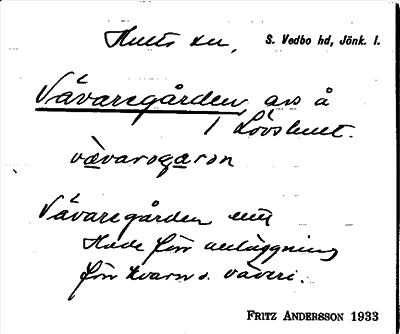 Hults sn, S. Vedbo hd, Jönk. l.
Vävaregården, avs å
1 Lövshult.
vävarɘgaɾɘn
Vävaregården
Hade förr anläggning
för kvarn o. väveri.
FRITZ ANDERSSON 1933